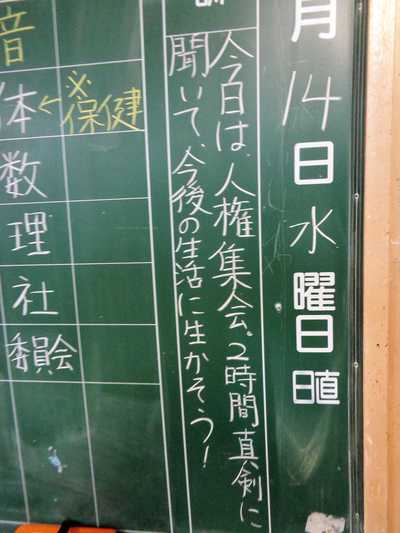 月14日水曜日
日直
今日は、人権集会。2時間真剣に
聞いて、今後の生活に生かそう!
音
体←※保健
数
理
社
委員会